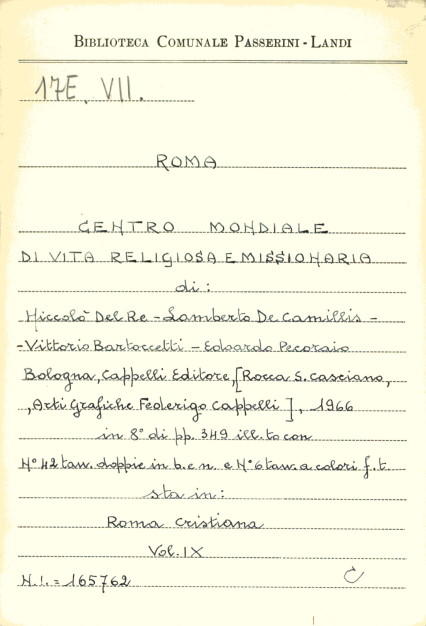 BIBLIOTECA COMUNALE PASSERINI - LANDI
17E. VII.
ROMA
CENTRO MONDIALE
DI VITA RELIGIOSA E MISSIONARIA
di:
Niccolò Del Re - Lamberto De Camillis -
- Vittorio Bartoccetti - Edoardo Pecoraio
Bologna, Cappelli Editore, [Rocca S. Casciano,
, Arti Grafiche Federigo Cappelli], 1966
in 8° di pp. 349 ill.to con
N° 42 tav. doppie in b. e n. e N° 6 tav. a colori f. t.
sta in:
Roma Cristiana
Vol. IX
N.I. = 165762
C